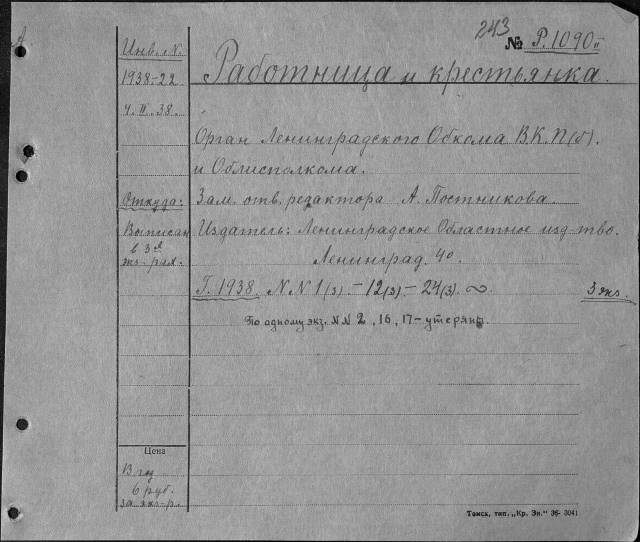 243
№ Р.1090 II
Инв. N.
1938-22
4. II. 38.
Работница и крестьянка.
Орган Ленинградского Обкома В.К.П(б).
и Облисполкома.
Откуда:
Зам. отв. редактора А. Постникова.
Выписан
в 3х
экз-рах.
Издатель: Ленинградское Областное изд-тво.
Ленинград 40.
Г. 1938. N N 1(3) – 12(3) – 24(3).
3 экз.
По одному экз. N N 2, 16, 17 – утеряны.
Цена
В год
6 руб.
за экз-р.
Томск, тип. „Кр. Зн." 36- 3041